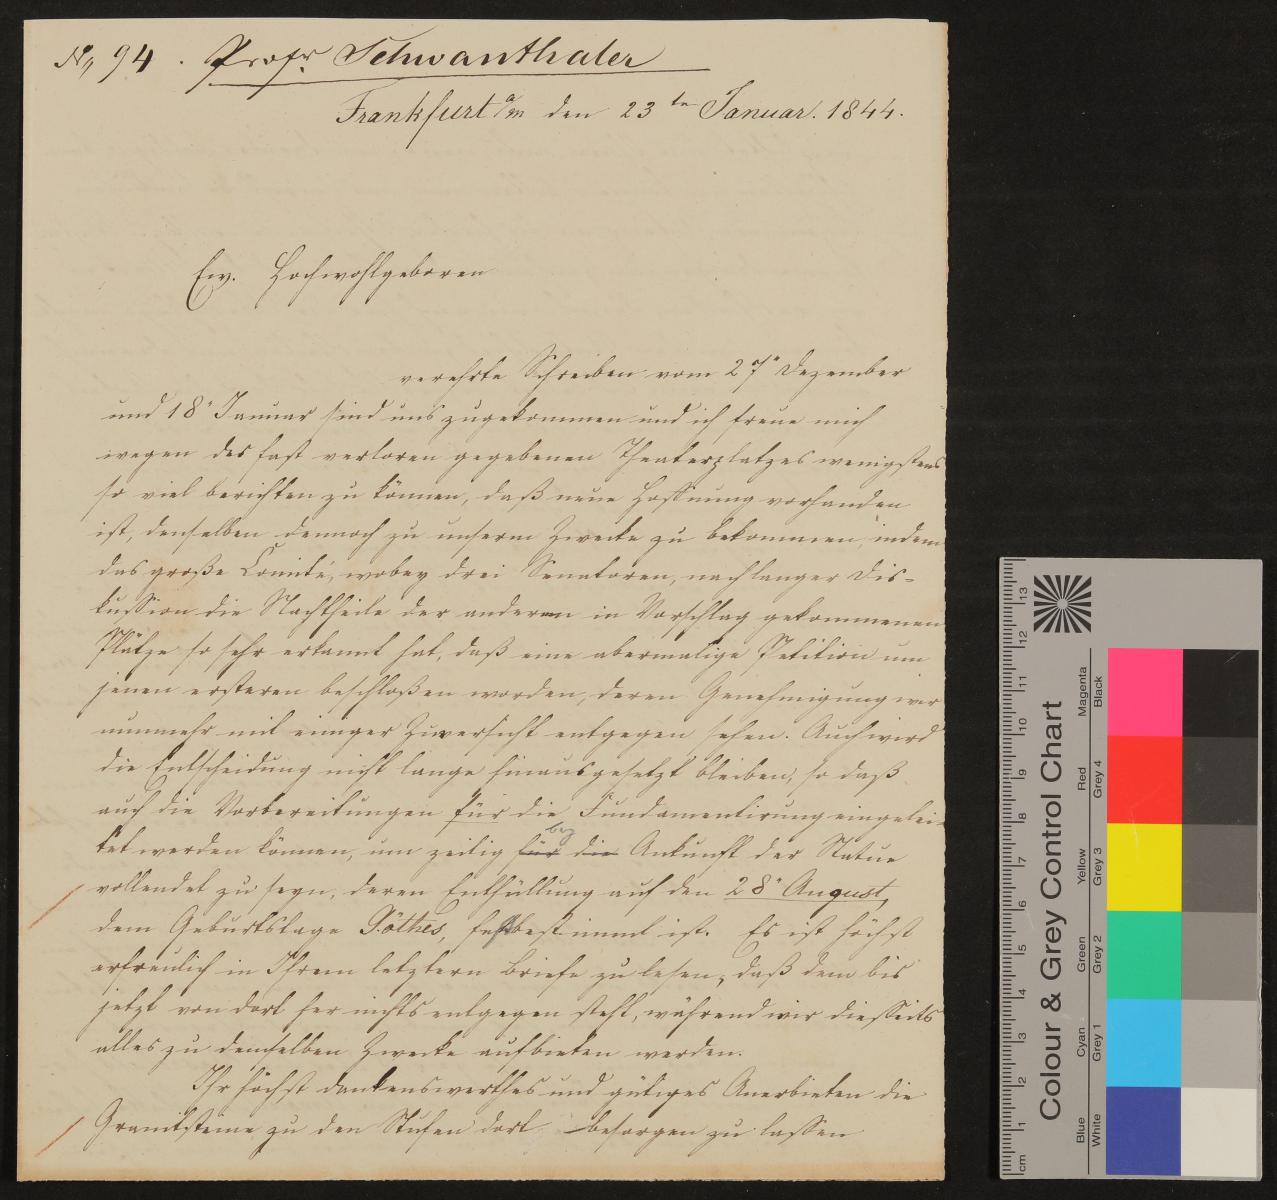 No 94. Profr. Schwanthaler
Frankfurt a/m den 23ten Januar. 1844.
Ew. Hochwohlgeboren
verehrte Schreiben vom 27n Dezember
und 18n Januar sind uns zugekommen und ich freue mich
wegen des fast verloren gegebenen Theaterplatzes wenigstens
so viel berichten zu können, daß neue Hoffnung vorhanden
ist, denselben dennoch zu unserm Zwecke zu bekommen, indem
das große Comité, wobey drei Senatoren, nach langer Dis-
kussion die Nachtheile der anderen in Vorschlag gekommenen
Plätze so sehr erkannt hat, daß eine abermalige Petition um
jenen ersteren beschloßen worden, deren Genehmigung wir
nunmehr mit einiger Zuversicht entgegen sehen. Auch wird
die Entscheidung nicht lange hinausgesetzt bleiben, so daß
auch die Vorbereitungen für die Fundamentirung eingelei-
bey
tet werden können, um zeitig für die Ankunft der Statue
vollendet zu seyn, deren Enthüllung auf den 28n August,
dem Geburtstage Göthes, festbestimmt ist. Es ist höchst
erfreulich in Ihrem letztern Briefe zu lesen, daß dem bis
jetzt von dort her nichts entgegen steht, während wir diesseits
alles zu demselben Zwecke aufbieten werden.
Ihr höchst dankenswerthes und gütiges Anerbieten die
Granitsteine zu den Stufen dort besorgen zu lassen
cm 1 2 3 4 5 6 7 8 9 10 11 12 13
Colour & Grey Control Chart
Blue Cyan Green Yellow Red Magenta
White Grey 1 Grey 2 Grey 3 Grey 4 Black